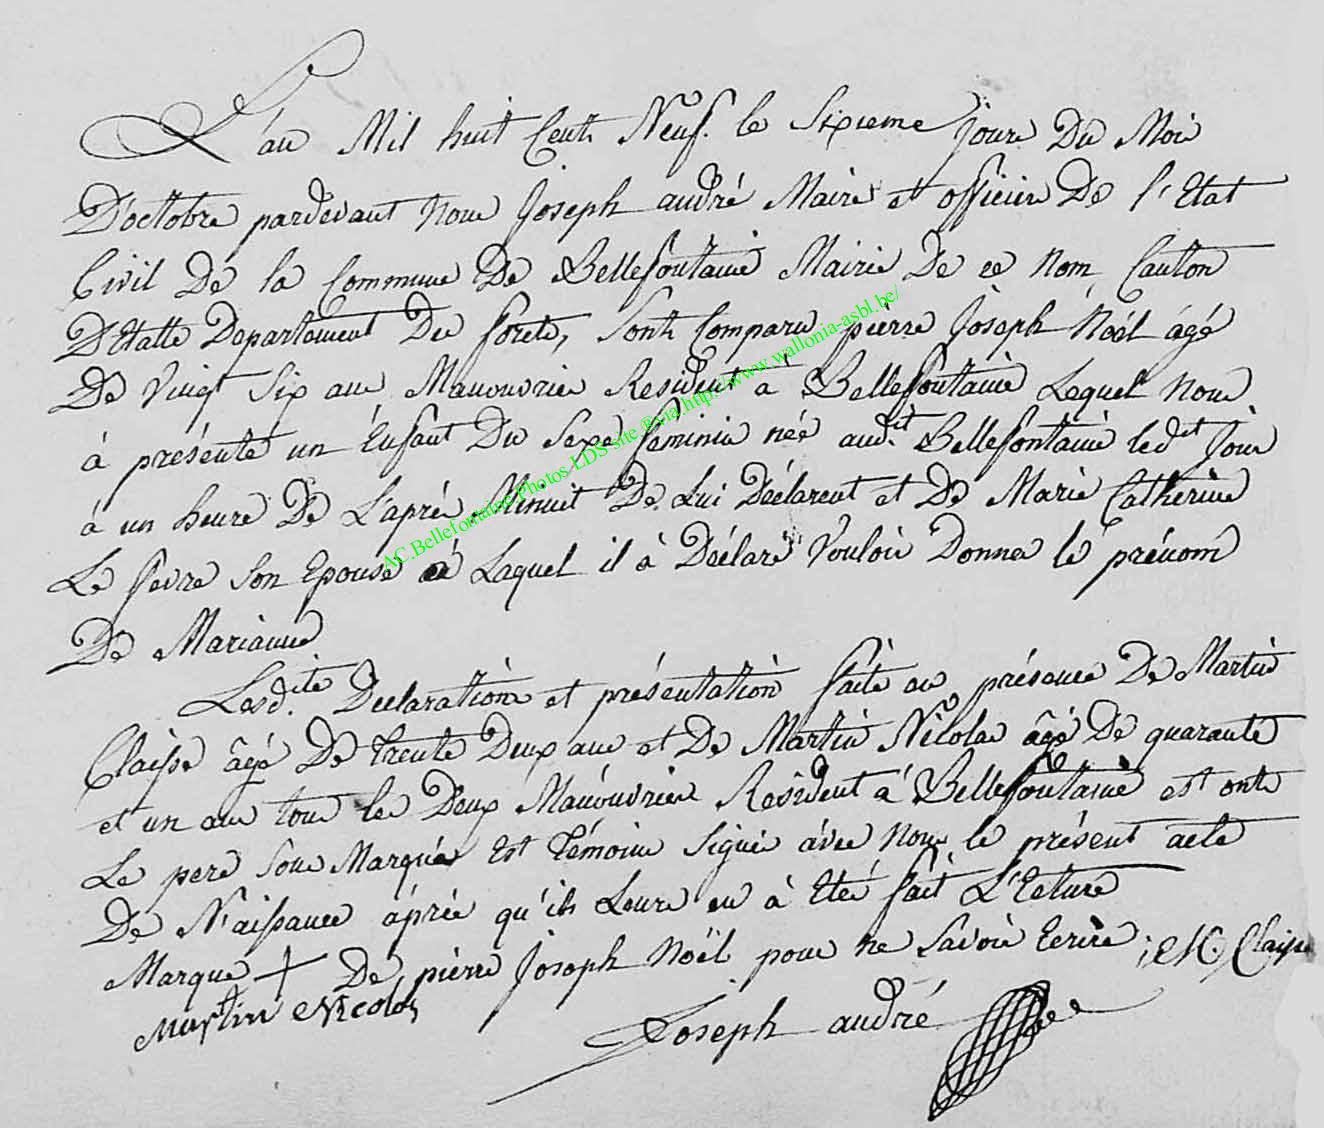 L'an Mil huit Cent Neuf. le Sixieme Jour Du Moi
D'octobre pardevant Nous Joseph andré Maire et officier De l'Etat
Civil De la Commune De Bellefontaine Mairie De ce Nom, Canton
D'Etalle Departement Des forets, Sont Comparu pierre Joseph Noël âgé
De Vingt Six ans Manouvrier Resident à Bellefontaine Lequel Nous
à présenté un Enfant Du Sexe féminin née audit Bellefontaine ledit Jour
à un heure De L'aprés Minuit De Lui Déclarent et De Marie Catherine
Le fevre Son Epouse et Laquel il à Déclaré Vouloir Donner le prénom
De Marianne
Lesdite Declaration et présentation faite en présence De Martin
Claisse âgé De trente Deux ans et De Martin Nicolas âgé De quarante
et un ans tous les Deux Manouvrier Resident à Bellefontaine est ont
Le pere Sous Marqués Est témoins Signés avec Nous le présent acte
De Naissance aprés qu'ils Leurs en à Eté fait L'Ecture
Marque + De pierre Joseph Noël pour ne Savoir Ecrire ; M, Claisse
Martin Nicolas
Joseph andré
AC.Bellefontaine.Photos LDS site ®via http://www.wallonia-asbl.be/